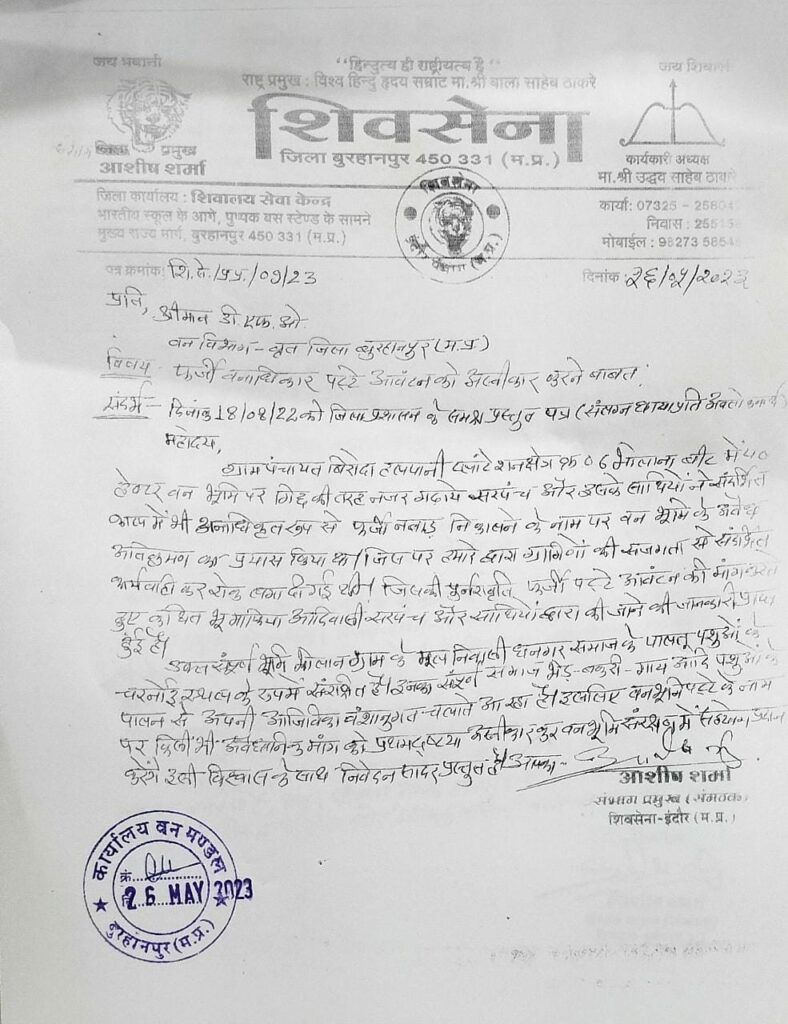 जय भवानी
"हिन्दुत्व ही राष्ट्रीयत्व है"
जय शिवाजी
राष्ट्र प्रमुख : विश्व हिन्दु हृदय सम्राट मा.श्री बाला साहेब ठाकरे
शिवसेना
जिला प्रमुख
आशीष शर्मा
जिला बुरहानपुर 450 331 (म.प्र.)
कार्यकारी अध्यक्ष
मा.श्री उद्धव साहेब ठाकरे
शिवसेना
जिला कार्यालय : शिवालय सेवा केन्द्र
भारतीय स्कूल के आगे, पुष्पक बस स्टेण्ड के सामने
मुख्य राज्य मार्ग, बुरहानपुर 450 331 (म.प्र.)
कार्या: 07325 -
निवास :
मोबाईल :
पत्र क्रमांक: शि.से./प्रप्र/09/23
दिनांक: २६/०५/२०२३
प्रति,
श्रीमान डी.एफ.ओ.
वन विभाग - वृत जिला बुरहानपुर (म.प्र.)
विषय - फर्जी वनाधिकार पट्टे आवंटन को अस्वीकार करने बाबत।
संदर्भ - दिनांक 18/08/22 को जिला प्रशासन के समक्ष प्रस्तुत पत्र (संलग्न छायाप्रति
महोदय,
ग्राम पंचायत बिरोदा प्लांटेशन क्षेत्र क्र 06 भोलाना बीट में ५०
हेक्टर वन भूमि पर गिद्द की तरह नजर गढाये सरपंच और उसके साथियों ने संदर्भित
काल में भी अनाधिकृत रूप से फर्जी नवाड़ निकालने के नाम पर वन भूमि के अवैध
अतिक्रमण का प्रयास किया था। जिस पर हमारे द्वारा ग्रामिणों की सजगता से संदर्भित
कार्यवाही कर रोक लगा दी गई थी। जिसकी पुर्नरावृति फर्जी पट्टे आवंटन की मांग करते
हुए कथित भू माफिया आदिवासी सरपंच और साथियों द्वारा की जाने की जानकारी प्राप्त
हुई है।
उक्त संपूर्ण भूमि भोलाना ग्राम के मूल निवासी धनगर समाज के पालतू पशुओं के
चरनोई स्थल के रूप में संरक्षित है। इनका संपूर्ण समाज भेड़-बकरी-गाय आदि पशुओं के
पालन से अपनी आजिविका वंशानुगत चलाते आ रहा है। इसलिए वनभूमि पट्टे के नाम
पर किसी भी अवैधानिक मांग को प्रथमदृष्टया अस्वीकार कर वन भूमि संरक्षण में सहयोग प्रदान
करेंगे इसी विश्वास के साथ निवेदन सादर प्रस्तुत है। आपका -
आशीष शर्मा
संभाग प्रमुख (संगठक)
शिवसेना-इंदौर (म.प्र.)
कार्यालय वन मण्डल
क्रं.
26 MAY 2023
बुरहानपुर (म.प्र.)